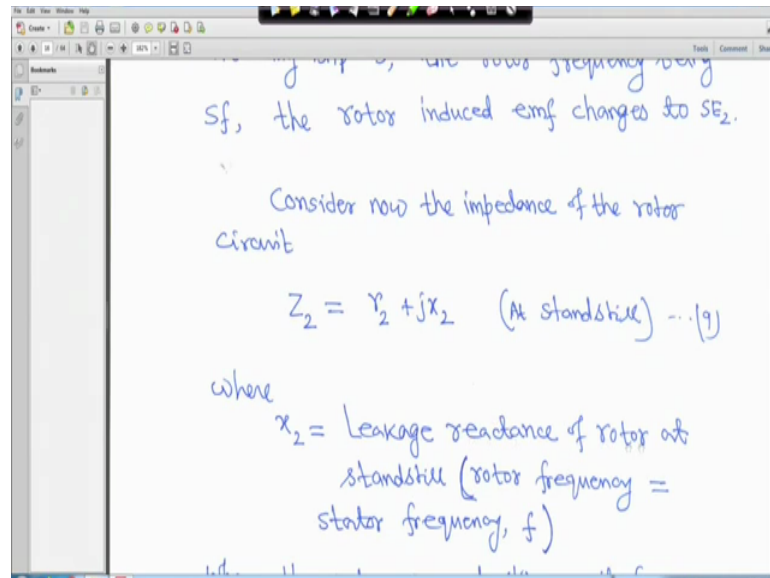 File Edit View Window Help
Create
182%
Tools Comment
Bookmarks
Sf, the rotor induced emf changes to SE₂.
Consider now the impedance of the rotor
circuit
Z₂ = r₂ + jx₂ (At standstill) ...(9)
where
x₂ = Leakage reactance of rotor at
standstill (rotor frequency =
stator frequency, f)